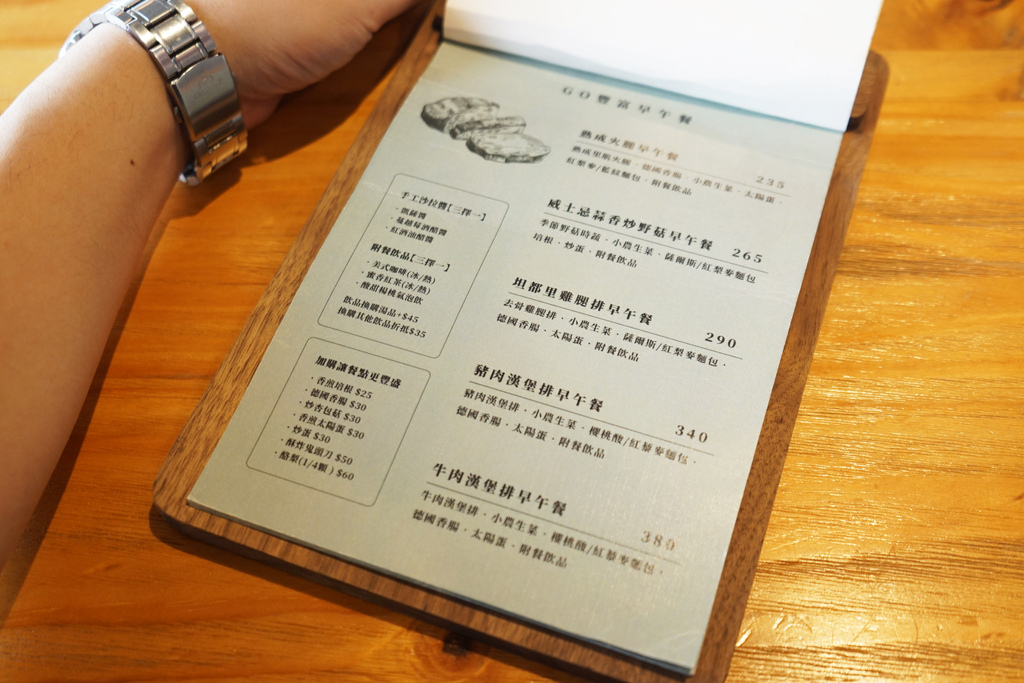 GO豐富早午餐
熟成火腿早午餐
235
熟成里肌火腿．德國香腸．小農生菜．太陽蛋．
紅梨麥/藍紋麵包．附餐飲品
威士忌蒜香炒野菇早午餐
265
季節野菇時蔬．小農生菜．薩爾斯/紅梨麥麵包
培根．炒蛋．附餐飲品
坦都里雞腿排早午餐
290
去骨雞腿排．小農生菜．薩爾斯/紅梨麥麵包．
德國香腸．太陽蛋．附餐飲品
豬肉漢堡排早午餐
340
豬肉漢堡排．小農生菜．櫻桃酸/紅藜麥麵包．
德國香腸．太陽蛋．附餐飲品
牛肉漢堡排早午餐
380
牛肉漢堡排．小農生菜．櫻桃酸/紅藜麥麵包．
德國香腸．太陽蛋．附餐飲品
手工沙拉醬[三擇一]
．凱薩醬
．蔓越莓酒醋醬
．紅酒油醋醬
附餐飲品[三擇一]
．美式咖啡(冰/熱)
．蜜香紅茶(冰/熱)
．酸甜楊桃氣泡飲
飲品換購湯品+$45
換購其他飲品折抵$35
加購讓餐點更豐盛
．香煎培根 $25
．德國香腸 $30
．炒杏包菇 $30
．香煎太陽蛋 $30
．炒蛋 $30
．酥炸鬼頭刀 $50
．酪梨(1/4顆) $60